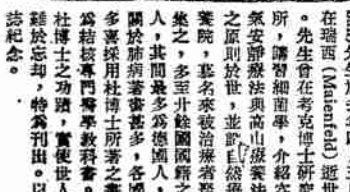 在瑞西(Maienfeld)逝世
。先生曾在考克博士研究
所，講習細菌學，介紹空
氣安靜療法與高山療養法
之原則於世，並設自然療
養院，慕名來被治療者聚
集之，多至廿餘國國籍之
人，其間最多爲德國人，
關於肺病著書甚多，各國
多喜採用杜博士所著之書
爲結核專門醫學教科書。
杜博士之功蹟，實使世人
難於忘却，特爲刊出。以
誌紀念。